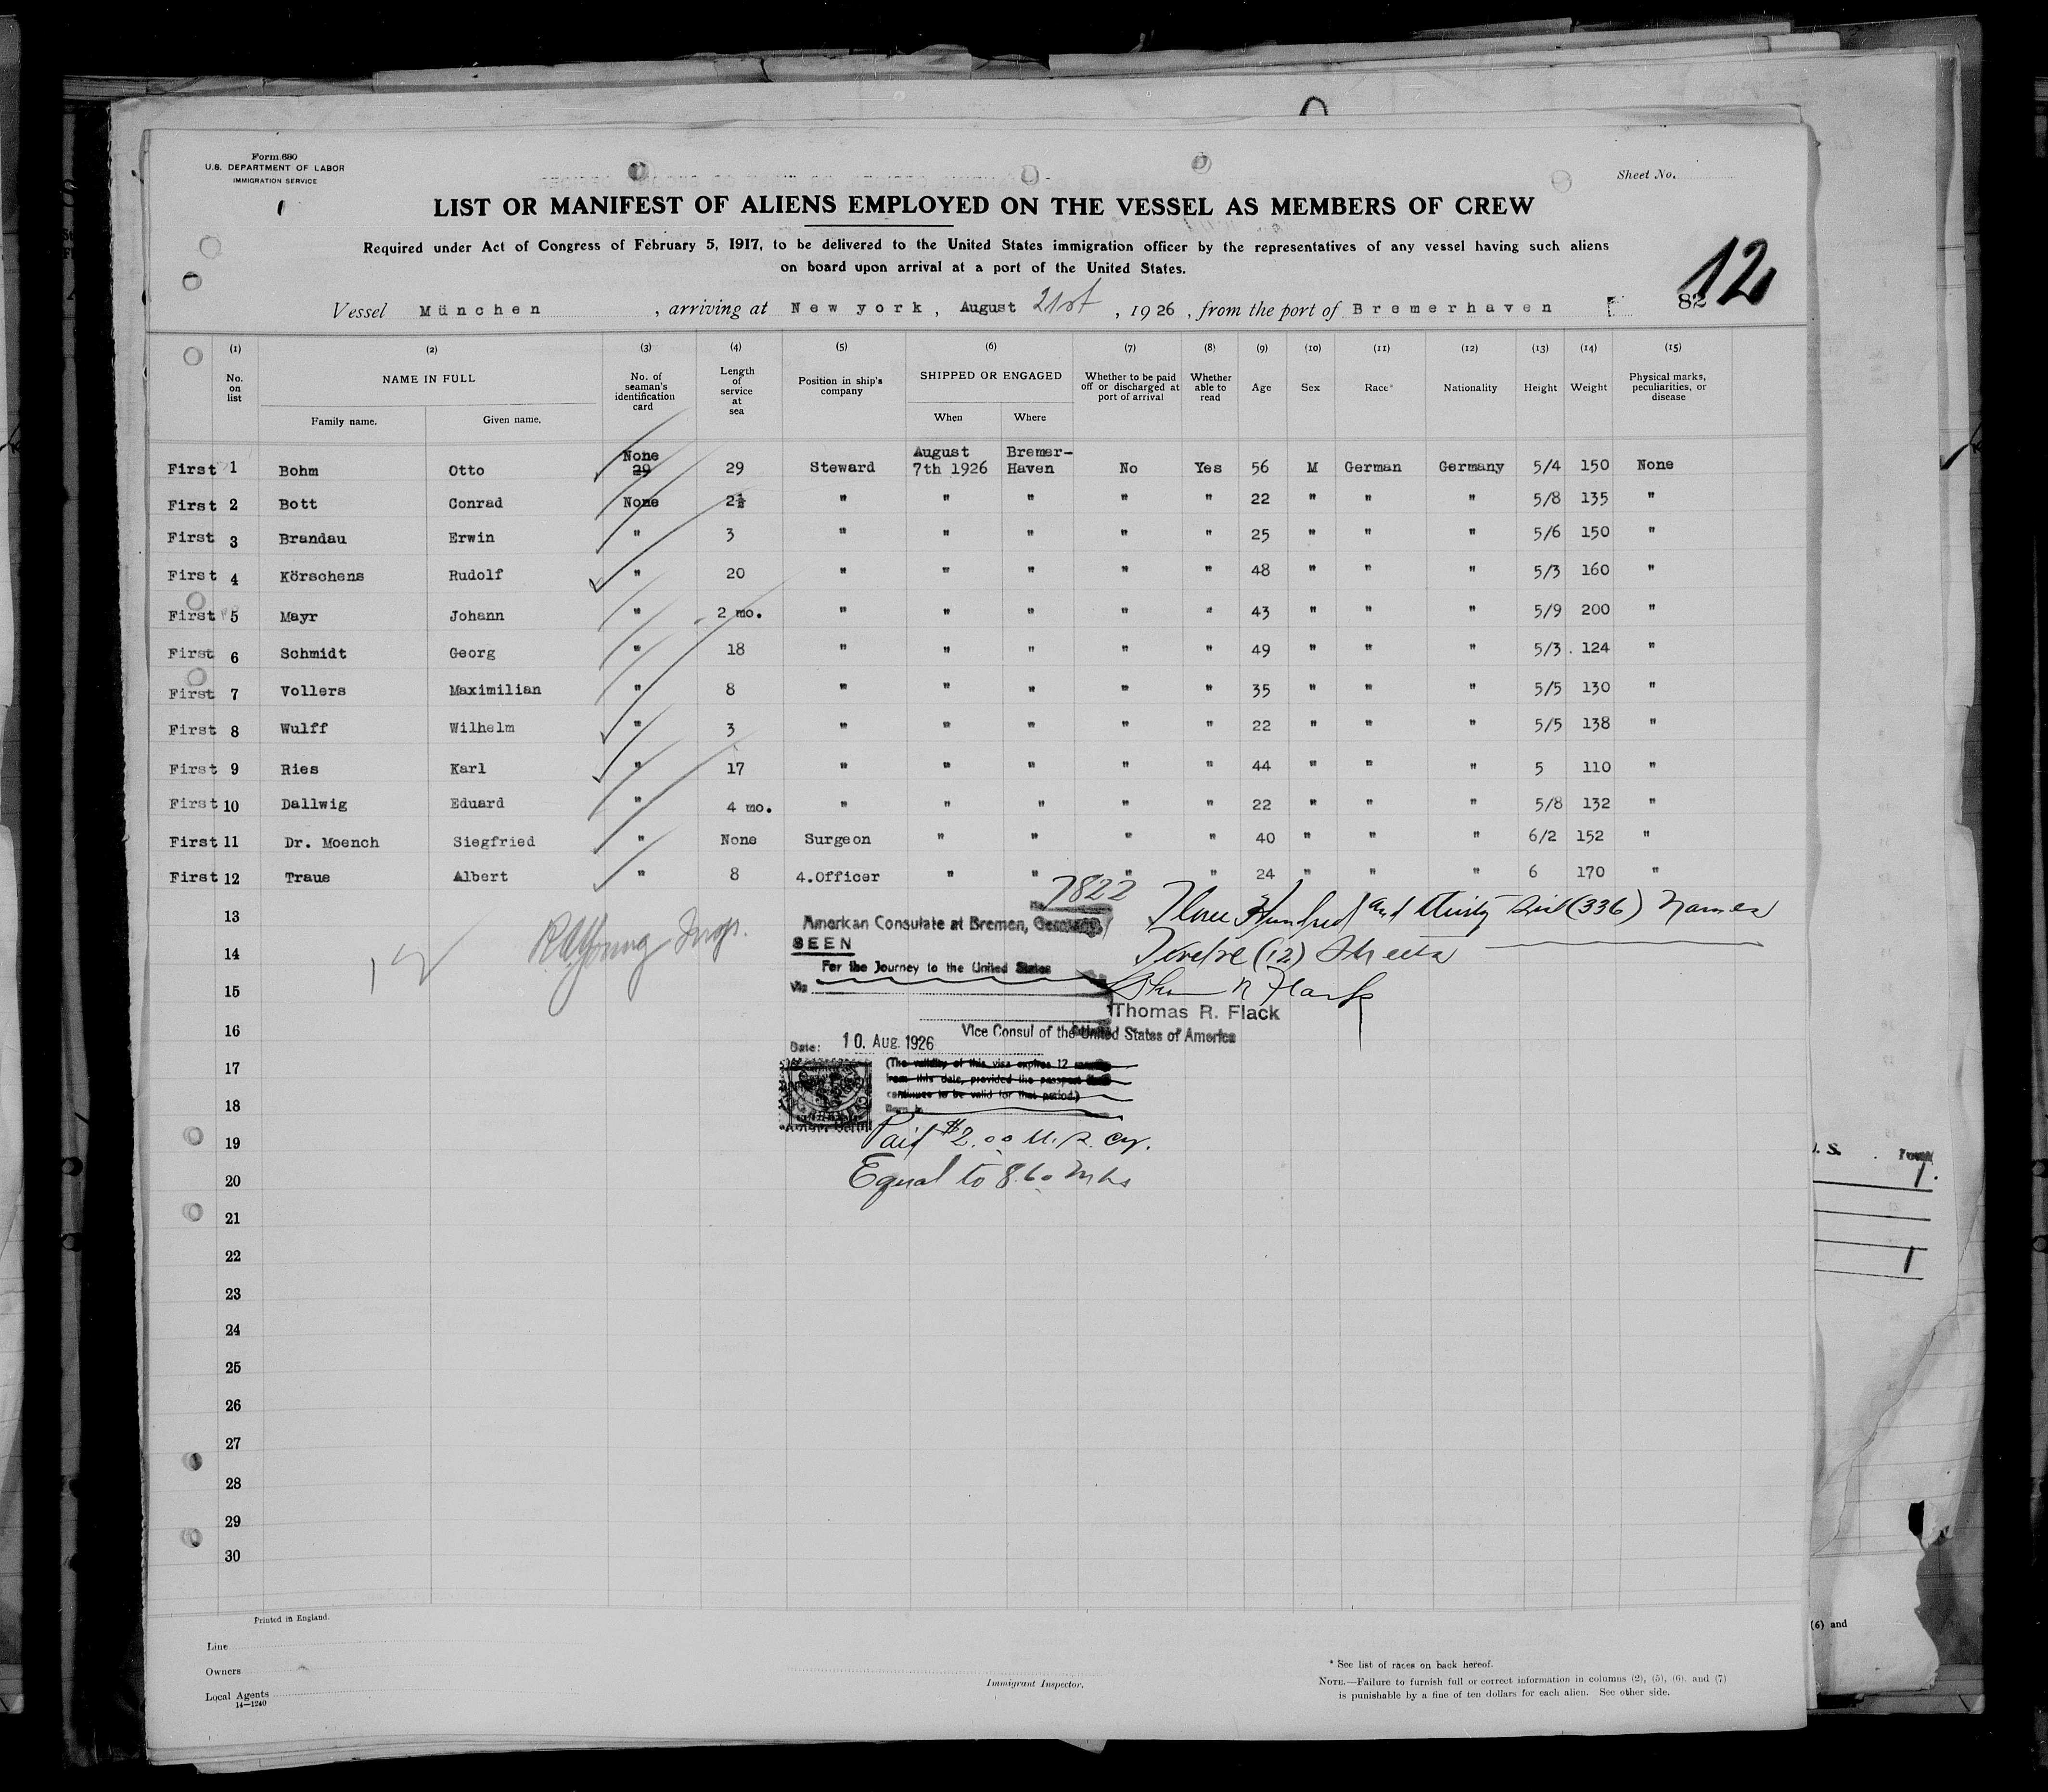 Form 680
U.S. DEPARTMENT OF LABOR
IMMIGRATION SERVICE
Sheet No.
LIST OR MANIFEST OF ALIENS EMPLOYED ON THE VESSEL AS MEMBERS OF CREW
Required under Act of Congress of February 5, 1917, to be delivered to the United States immigration officer by the representatives of any vessel having such aliens
on board upon arrival at a port of the United States.
12
Vessel München, arriving at New york, August 21st, 1926, from the port of Bremerhaven 82
(1) (2) (3) (4) (5) (6) (7) (8) (9) (10) (11) (12) (13) (14) (15)
No. on list NAME IN FULL Family name. Given name. No. of seaman's identification card Length of service at sea Position in ship's company SHIPPED OR ENGAGED When Where Whether to be paid off or discharged at port of arrival Whether able to read Age Sex Race* Nationality Height Weight Physical marks, peculiarities, or disease
First 1 Bohm Otto None 29 29 Steward August 7th 1926 Bremer-Haven No Yes 56 M German Germany 5/4 150 None
First 2 Bott Conrad None 2½ " " " " " 22 " " " 5/8 135 "
First 3 Brandau Erwin " 3 " " " " " 25 " " " 5/6 150 "
First 4 Körschens Rudolf " 20 " " " " " 48 " " " 5/3 160 "
First 5 Mayr Johann " 2 mo. " " " " " 43 " " " 5/9 200 "
First 6 Schmidt Georg " 18 " " " " " 49 " " " 5/3 124 "
First 7 Vollers Maximilian " 8 " " " " " 35 " " " 5/5 130 "
First 8 Wulff Wilhelm " 3 " " " " " 22 " " " 5/5 138 "
First 9 Ries Karl " 17 " " " " " 44 " " " 5 110 "
First 10 Dallwig Eduard " 4 mo. " " " " " 22 " " " 5/8 132 "
First 11 Dr. Moench Siegfried " None Surgeon " " " " 40 " " " 6/2 152 "
First 12 Traue Albert " 8 4.Officer " " " " 24 " " " 6 170 "
13
14
15
16
17
18
19
20
21
22
23
24
25
26
27
28
29
30
12
7822
American Consulate at Bremen, Germany
SEEN
For the Journey to the United States
Via
Three Hundred and thirty six (336) Names
Twelve (12) Sheets
Thomas R. Flack
Vice Consul of the United States of America
Date: 10. Aug. 1926
(The validity of this visa expires 12
from this date, provided the passport
continues to be valid for that period.)
Paid $2.00 U.S. cy.
Equal to 8.60 Mks
Printed in England.
Line
Owners
Local Agents
14—1240
Immigrant Inspector.
* See list of races on back hereof.
NOTE.—Failure to furnish full or correct information in columns (2), (5), (6), and (7)
is punishable by a fine of ten dollars for each alien. See other side.
(6) and